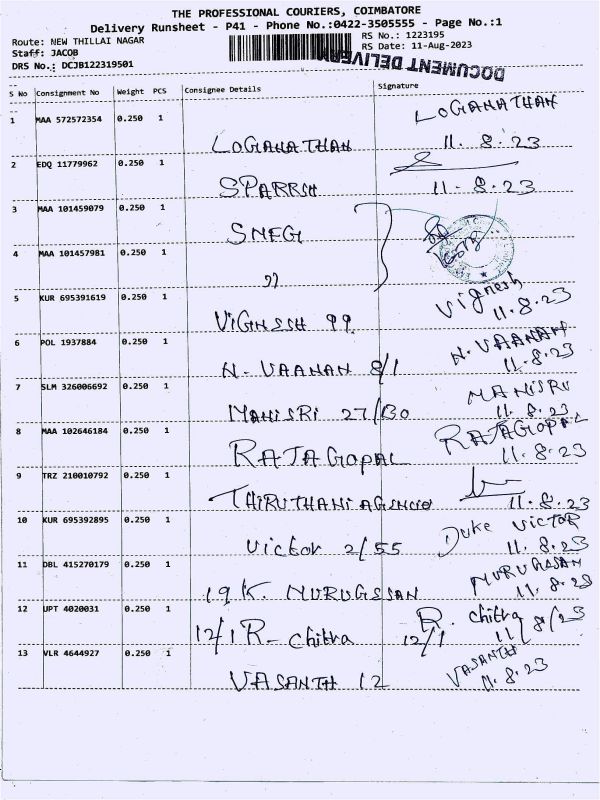 THE PROFESSIONAL COURIERS, COIMBATORE
Delivery Runsheet - P41 - Phone No.:0422-3505555 - Page No.:1
Route: NEW THILLAI NAGAR
RS No.: 1223195
Staff: JACOB
RS Date: 11-Aug-2023
DRS No.: DCJB122319501
DOCUMENT DELIVERY
S No Consignment No Weight PCS Consignee Details Signature
1 MAA 572572354 0.250 1 LOGANATHAN LOGANATHAN 11.8.23
2 EDQ 11779962 0.250 1 SPARRSH 11.8.23
3 MAA 101459079 0.250 1 SNEG
4 MAA 101457981 0.250 1 "
5 KUR 695391619 0.250 1 VIGNESH 99 Vignesh 11.8.23
6 POL 1937884 0.250 1 N. VAANAN 8/1 N. VAANAN 11.8.23
7 SLM 326006692 0.250 1 MANISRI 27/130 MANISRI 11.8.23
8 MAA 102646184 0.250 1 RAJAGOPAL RAJAGOPAL 11.8.23
9 TRZ 210010792 0.250 1 THIRUTHANI 11.8.23
10 KUR 695392895 0.250 1 Victor 2/55 Duke VICTOR 11.8.23
11 DBL 415270179 0.250 1 19 K. MURUGESSAN MURUGASAN 11.8.23
12 UPT 4020031 0.250 1 12/1 R- Chitra R. Chitra 12/1 11/8/23
13 VLR 4644927 0.250 1 VASANTH 12 VASANTH 11.8.23